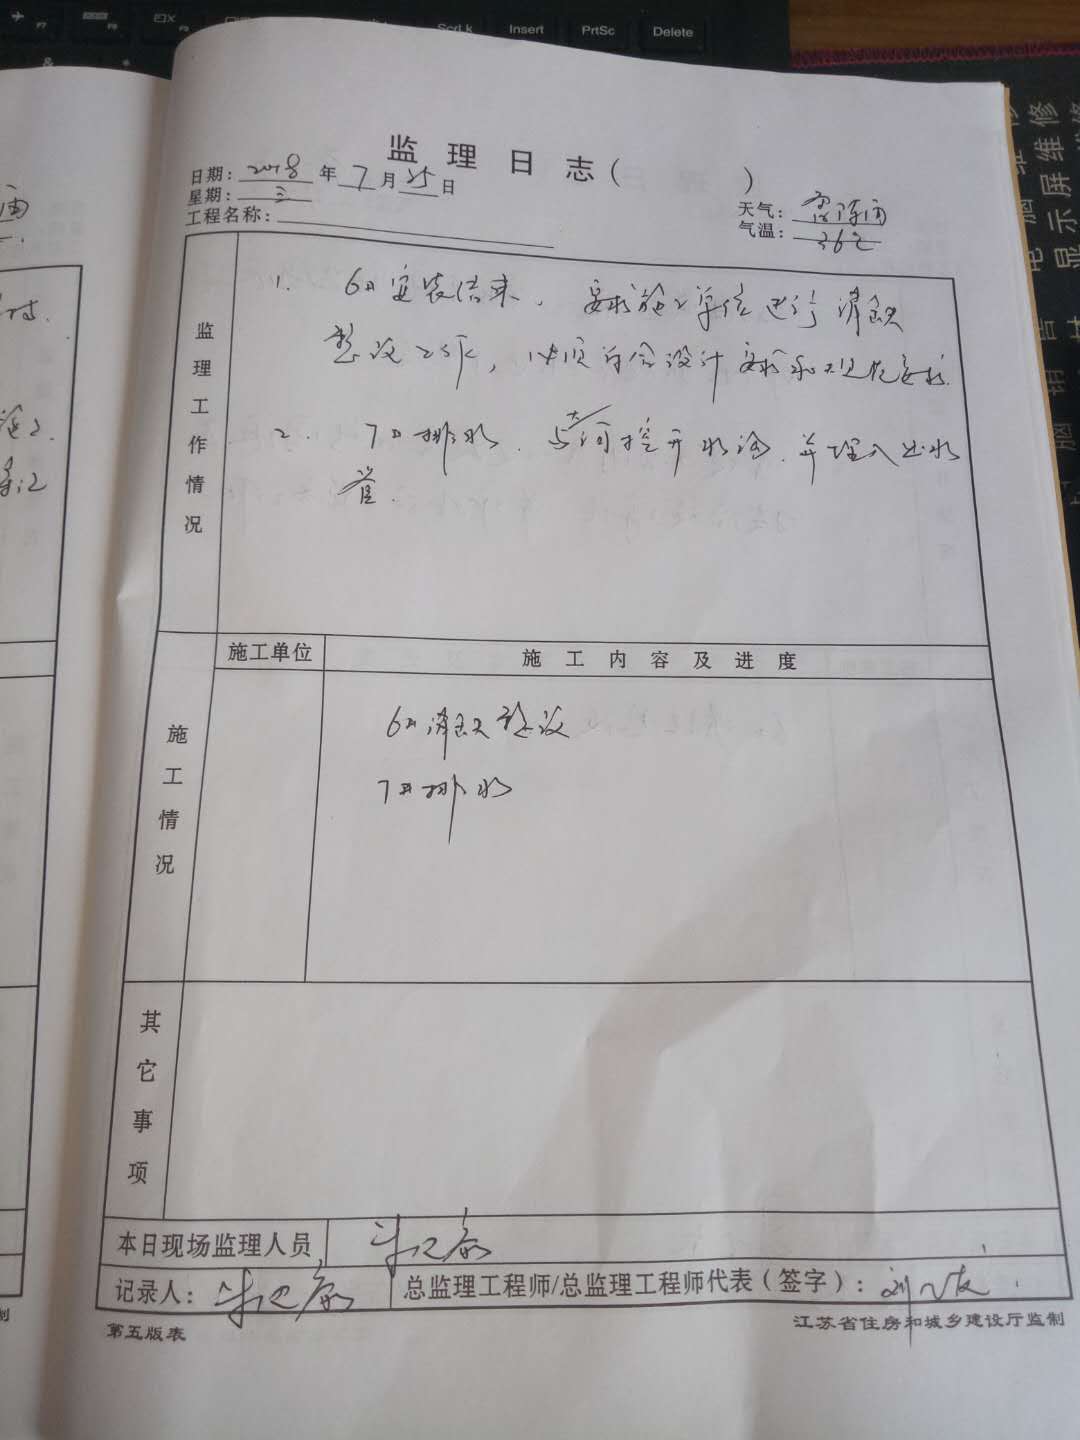 Insert
PrtSc
Delete
监理日志( )
日期: 2018 年 7 月 25 日
星期: 三
天气:
工程名称:
气温: 36℃
监理工作情况
1. 6# 安装结束、要求施工单位进行消缺
整改工作, 必须符合设计要求和规范要求.
2. 7# 排水. 与河挖开水沟. 并埋入出水
管.
施工单位
施工内容及进度
施工情况
6# 消缺整改
7# 排水
其它事项
本日现场监理人员
记录人:
总监理工程师/总监理工程师代表(签字):
第五版表
江苏省住房和城乡建设厅监制
显示屏维修